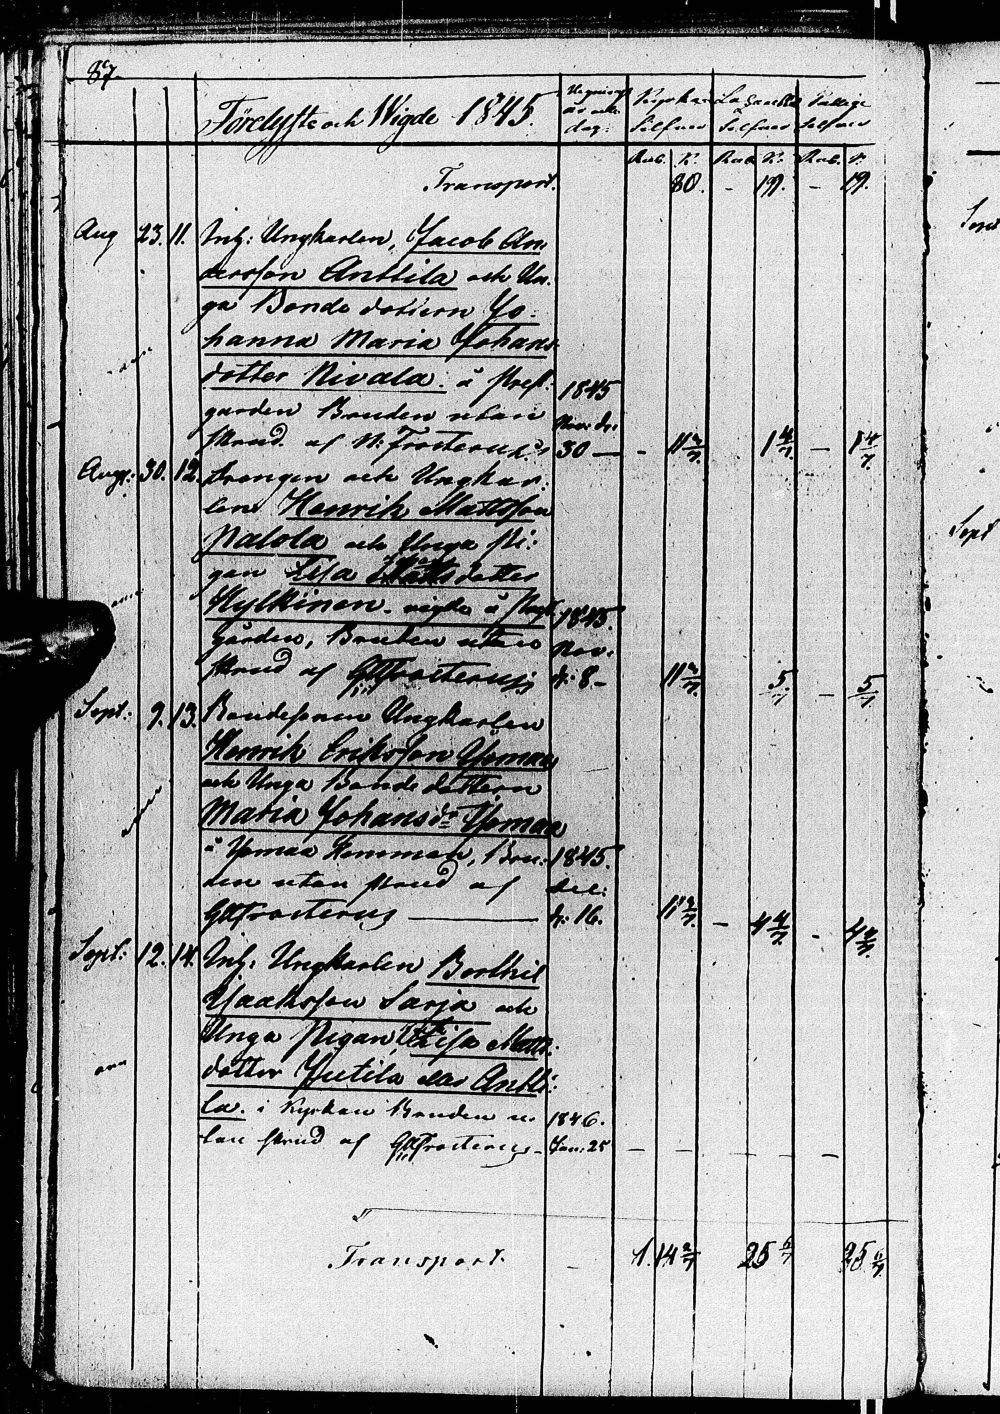 87.
Förelyste och Wigde 1845.
Wigning år och dag.
Kyrkan Silfver
La Silfver
Silfver
Rub. K. Rub. K. Rub. K.
Transport. 80. - 19. - 19.
Aug 23. 11. Inh: Ungkarlen, Jacob An
dersson Anttila och Un-
ga Bonde dottern Jo-
hanna Maria Johans
dotter Nivala. å Prest-
gården Bruden utan 1845
skrud af N: Frosterus Nov: d:
30 — - 11 3/7. 1 4/7. — 1 4/7.
Aug: 30. 12. Drengen och Ungkar-
len Henrik Mattsson
Palola och Unga Pi-
gan Lisa Matts dotter
Hylkinen. vigde å Prest 1845.
gården, Bruden utan Nov:
skrud af GFrosterus d: 8 – 11 3/7. 5/7 — 5/7
Sept: 9. 13. Bondesonen Ungkarlen
Henrik Eriksson Ypmaa
och Unga Bonde dottern
Maria Johans dr Ypmaa
å Ypmaa Hemman, Bru- 1845.
den utan skrud af Dec:
GFrosterus — d: 16. 11 3/7. - 4 4/7. - 4 4/7.
Sept: 12. 14. Inh. Ungkarlen Berthil
Jaaksson Sarja och
Unga Pigan, Lisa Matts
dotter Jutila elr Antti-
la. i Kyrkan Bruden u- 1846.
tan skrud af GFrosterus - Jan: 25 — — — — —
Transport. — 1. 14 2/7 25 6/7 25 6/7.
Sept